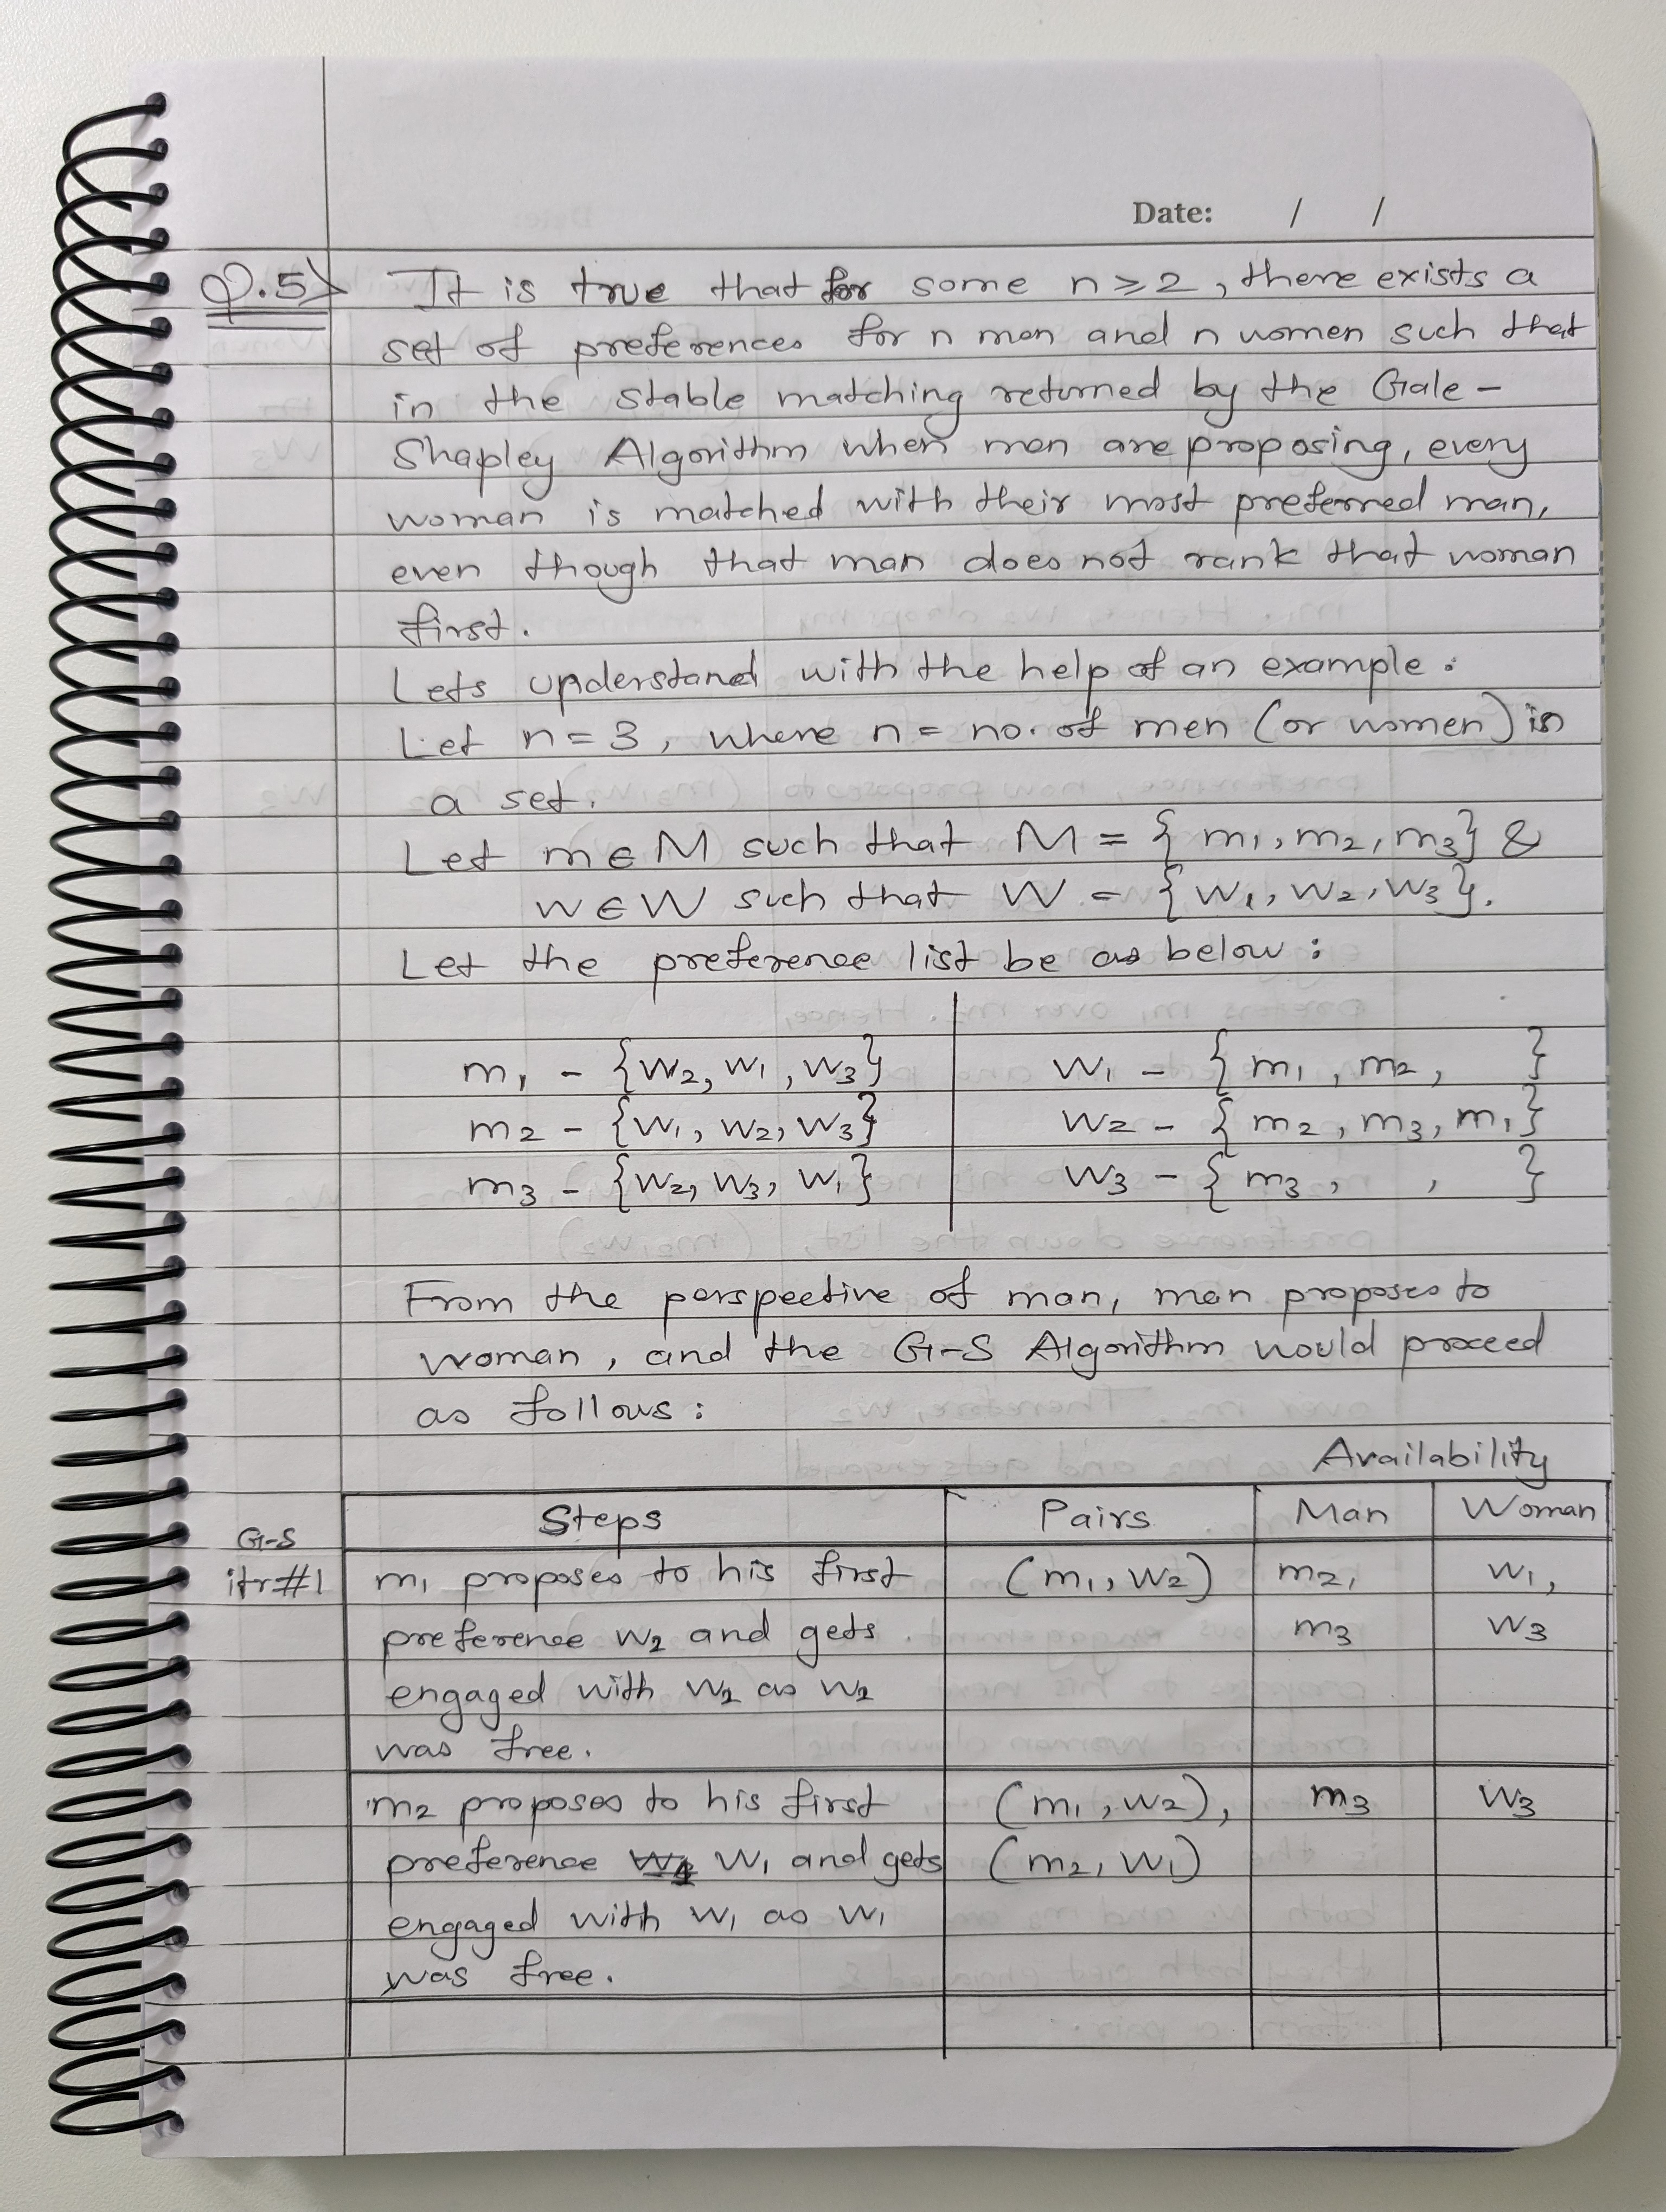 Date: / /
Q.5> It is true that for some n ≥ 2, there exists a
set of preferences for n men and n women such that
in the stable matching returned by the Gale-
Shapley Algorithm when men are proposing, every
woman is matched with their most preferred man,
even though that man does not rank that woman
first.
Lets understand with the help of an example:
Let n = 3, where n = no. of men (or women) in
a set.
Let m ∈ M such that M = { m1, m2, m3} &
w ∈ W such that W = { W1, W2, W3}.
Let the preference list be as below:
m1 - {W2, W1, W3} W1 - { m1, m2, }
m2 - {W1, W2, W3} W2 - { m2, m3, m1}
m3 - {W2, W3, W1} W3 - { m3, , }
From the perspective of man, man proposes to
woman, and the G-S Algorithm would proceed
as follows:
Availability
Steps Pairs Man Woman
G-S
itr#1 m1 proposes to his first (m1, W2) m2, W1,
preference W2 and gets m3 W3
engaged with W2 as W2
was free.
m2 proposes to his first (m1, W2), m3 W3
preference W1 and gets (m2, W1)
engaged with W1 as W1
was free.